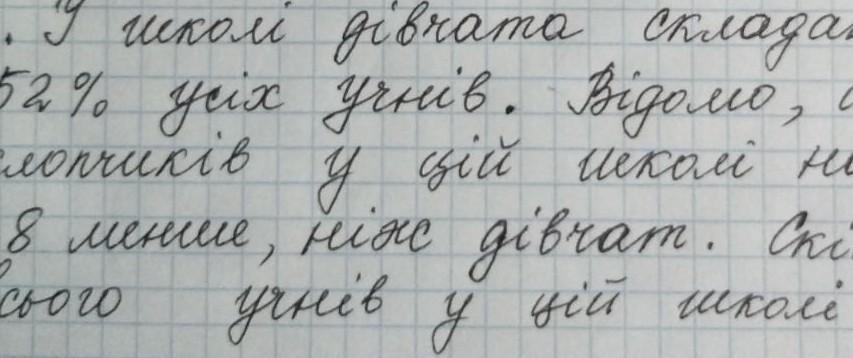 . У школі дівчата склада
52% усіх учнів. Відомо,
лопчиків у цій школі н
8 менше, ніж дівчат. Скі
сього учнів у цій школі